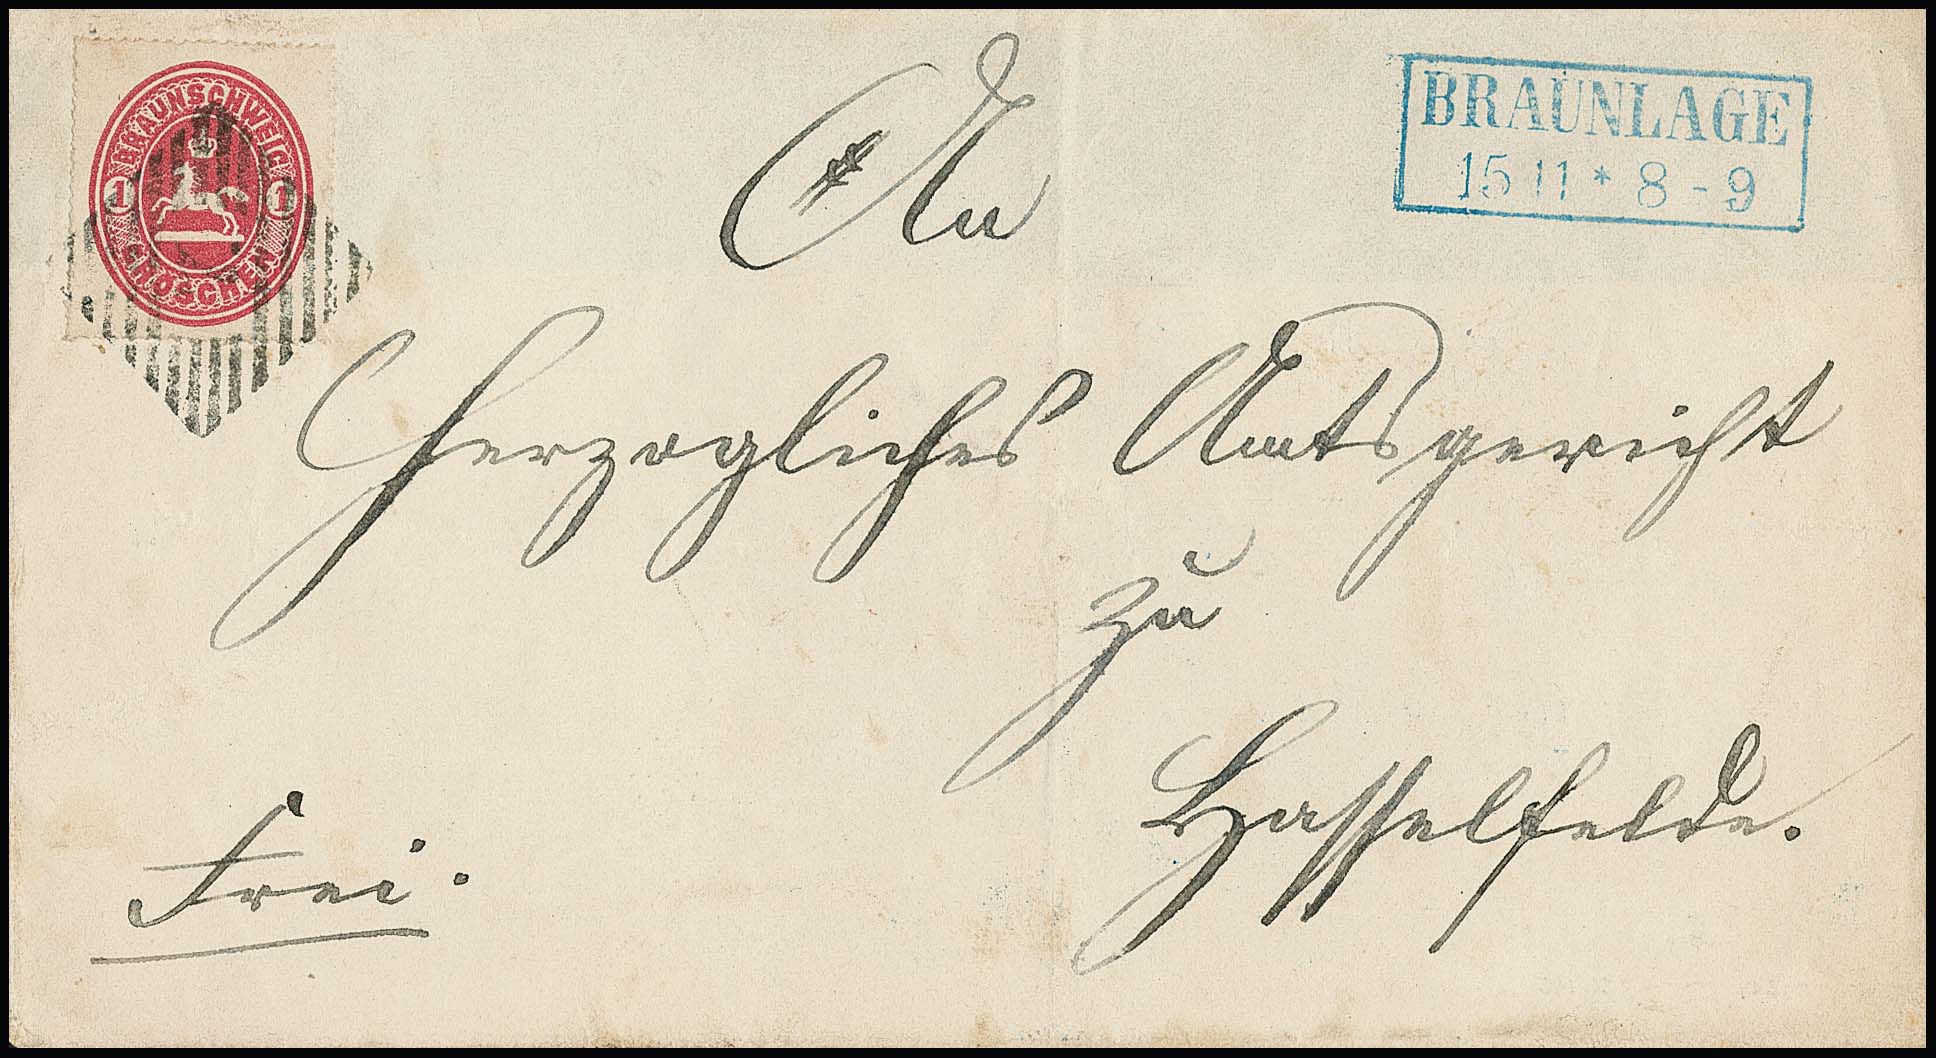 BRAUNSCHWEIG
1 1
GROSCHEN
BRAUNLAGE
15 11 * 8 - 9
An
Herzogliches Amtsgericht
zu
Hasselfelde.
Frei.